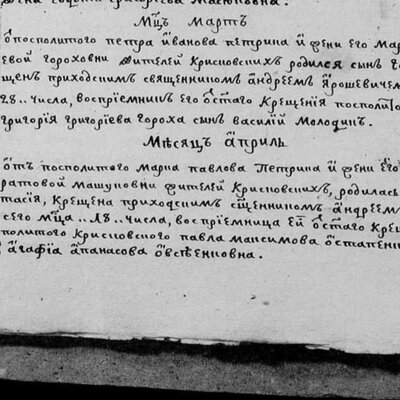 Мцъ Мартъ
Ѿ посполитого петра иванова петрина и жени его мар
евой гороховни жителей крисковскихъ родился сынъ
щенъ приходскимъ священникомъ андреемъ ярошевичем
28.. числа, воспріемникъ его ѿ стаго крещенія посполито
григорія григоріева гороха сынъ василій молодикъ.
Мѣсяцъ Априль
Ѿтъ посполитого марка павлова петрина и жени его
ратовой мацуковни жителей крисковскихъ, родилась
тасія, крещена приходскимъ сщенникомъ андреем
сего мца ..18.. числа, воспріемница ей ѿ стаго крещ
политого крисковского павла максимова остапенк
агафія апанасова овсѣенковна.